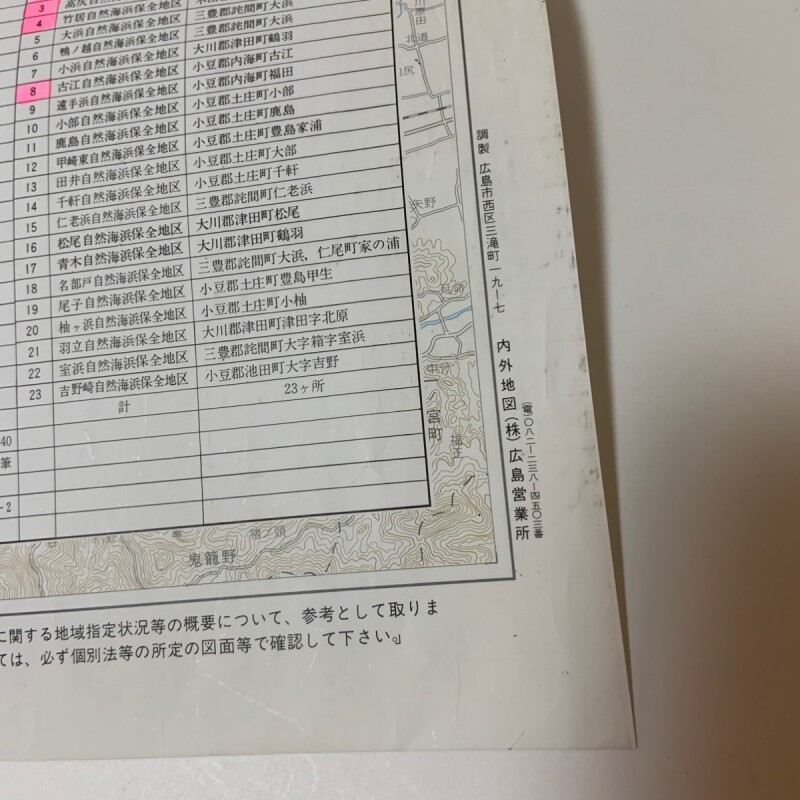 3 高尻自然
4 竹居自然海浜保全地区
5 大浜自然海浜保全地区 三豊郡詫間町大浜
6 鴨ノ越自然海浜保全地区 三豊郡詫間町大浜
7 小浜自然海浜保全地区 大川郡津田町鶴羽
8 古江自然海浜保全地区 小豆郡内海町古江
9 遠手浜自然海浜保全地区 小豆郡内海町福田
10 小部自然海浜保全地区 小豆郡土庄町小部
11 鹿島自然海浜保全地区 小豆郡土庄町鹿島
12 甲崎東自然海浜保全地区 小豆郡土庄町豊島家浦
13 田井自然海浜保全地区 小豆郡土庄町大部
14 千軒自然海浜保全地区 小豆郡土庄町千軒
15 仁老浜自然海浜保全地区 三豊郡詫間町仁老浜
16 松尾自然海浜保全地区 大川郡津田町松尾
17 青木自然海浜保全地区 大川郡津田町鶴羽
18 名部戸自然海浜保全地区 三豊郡詫間町大浜，仁尾町家の浦
19 尾子自然海浜保全地区 小豆郡土庄町豊島甲生
20 柚ヶ浜自然海浜保全地区 小豆郡土庄町小柚
21 羽立自然海浜保全地区 大川郡津田町津田字北原
22 室浜自然海浜保全地区 三豊郡詫間町大字箱字室浜
23 吉野崎自然海浜保全地区 小豆郡池田町大字吉野
計 23ヶ所
40
筆
-2
北道
矢野
中分
一ノ宮町
福正
猪ノ頭
鬼籠野
調製 広島市西区三滝町一九ー七
内外地図(株)広島営業所
(電)〇八二ー二三八ー四五〇三番
に関する地域指定状況等の概要について、参考として取りま
ては、必ず個別法等の所定の図面等で確認して下さい。』